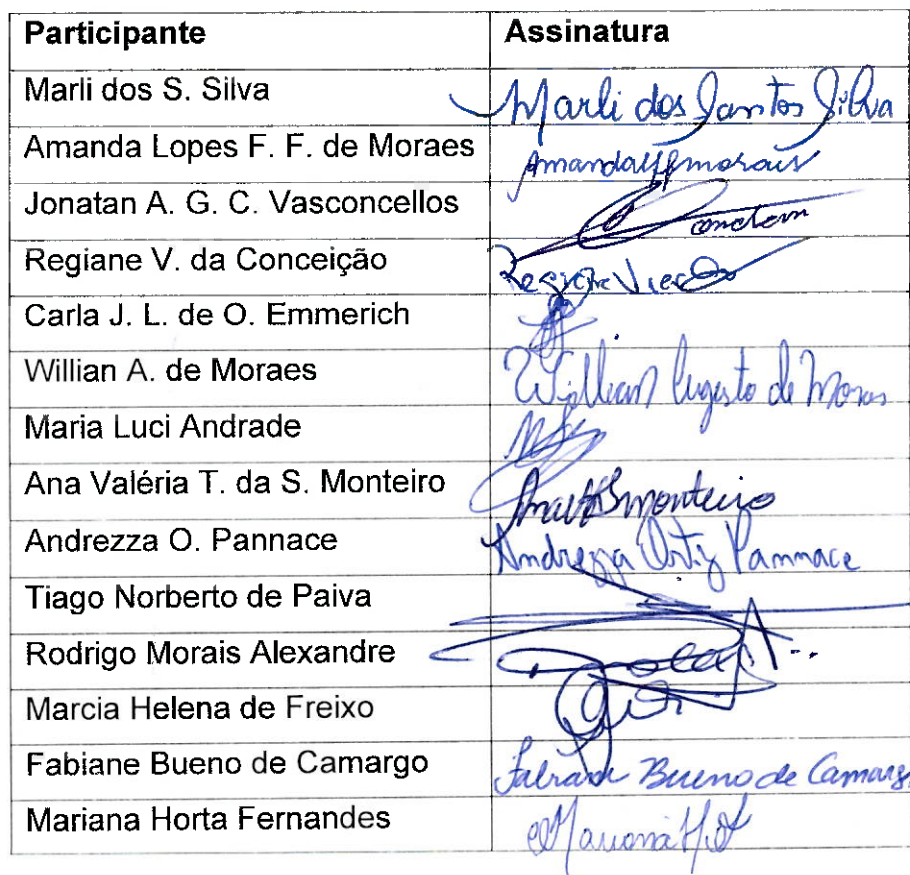 Participante Assinatura
Marli dos S. Silva Marli dos Santos Silva
Amanda Lopes F. F. de Moraes
Jonatan A. G. C. Vasconcellos
Regiane V. da Conceição
Carla J. L. de O. Emmerich
Willian A. de Moraes Willian Augusto de Moraes
Maria Luci Andrade
Ana Valéria T. da S. Monteiro Monteiro
Andrezza O. Pannace Andrezza Ortiz Pannace
Tiago Norberto de Paiva
Rodrigo Morais Alexandre
Marcia Helena de Freixo
Fabiane Bueno de Camargo Fabiane Bueno de Camarg
Mariana Horta Fernandes Mariana